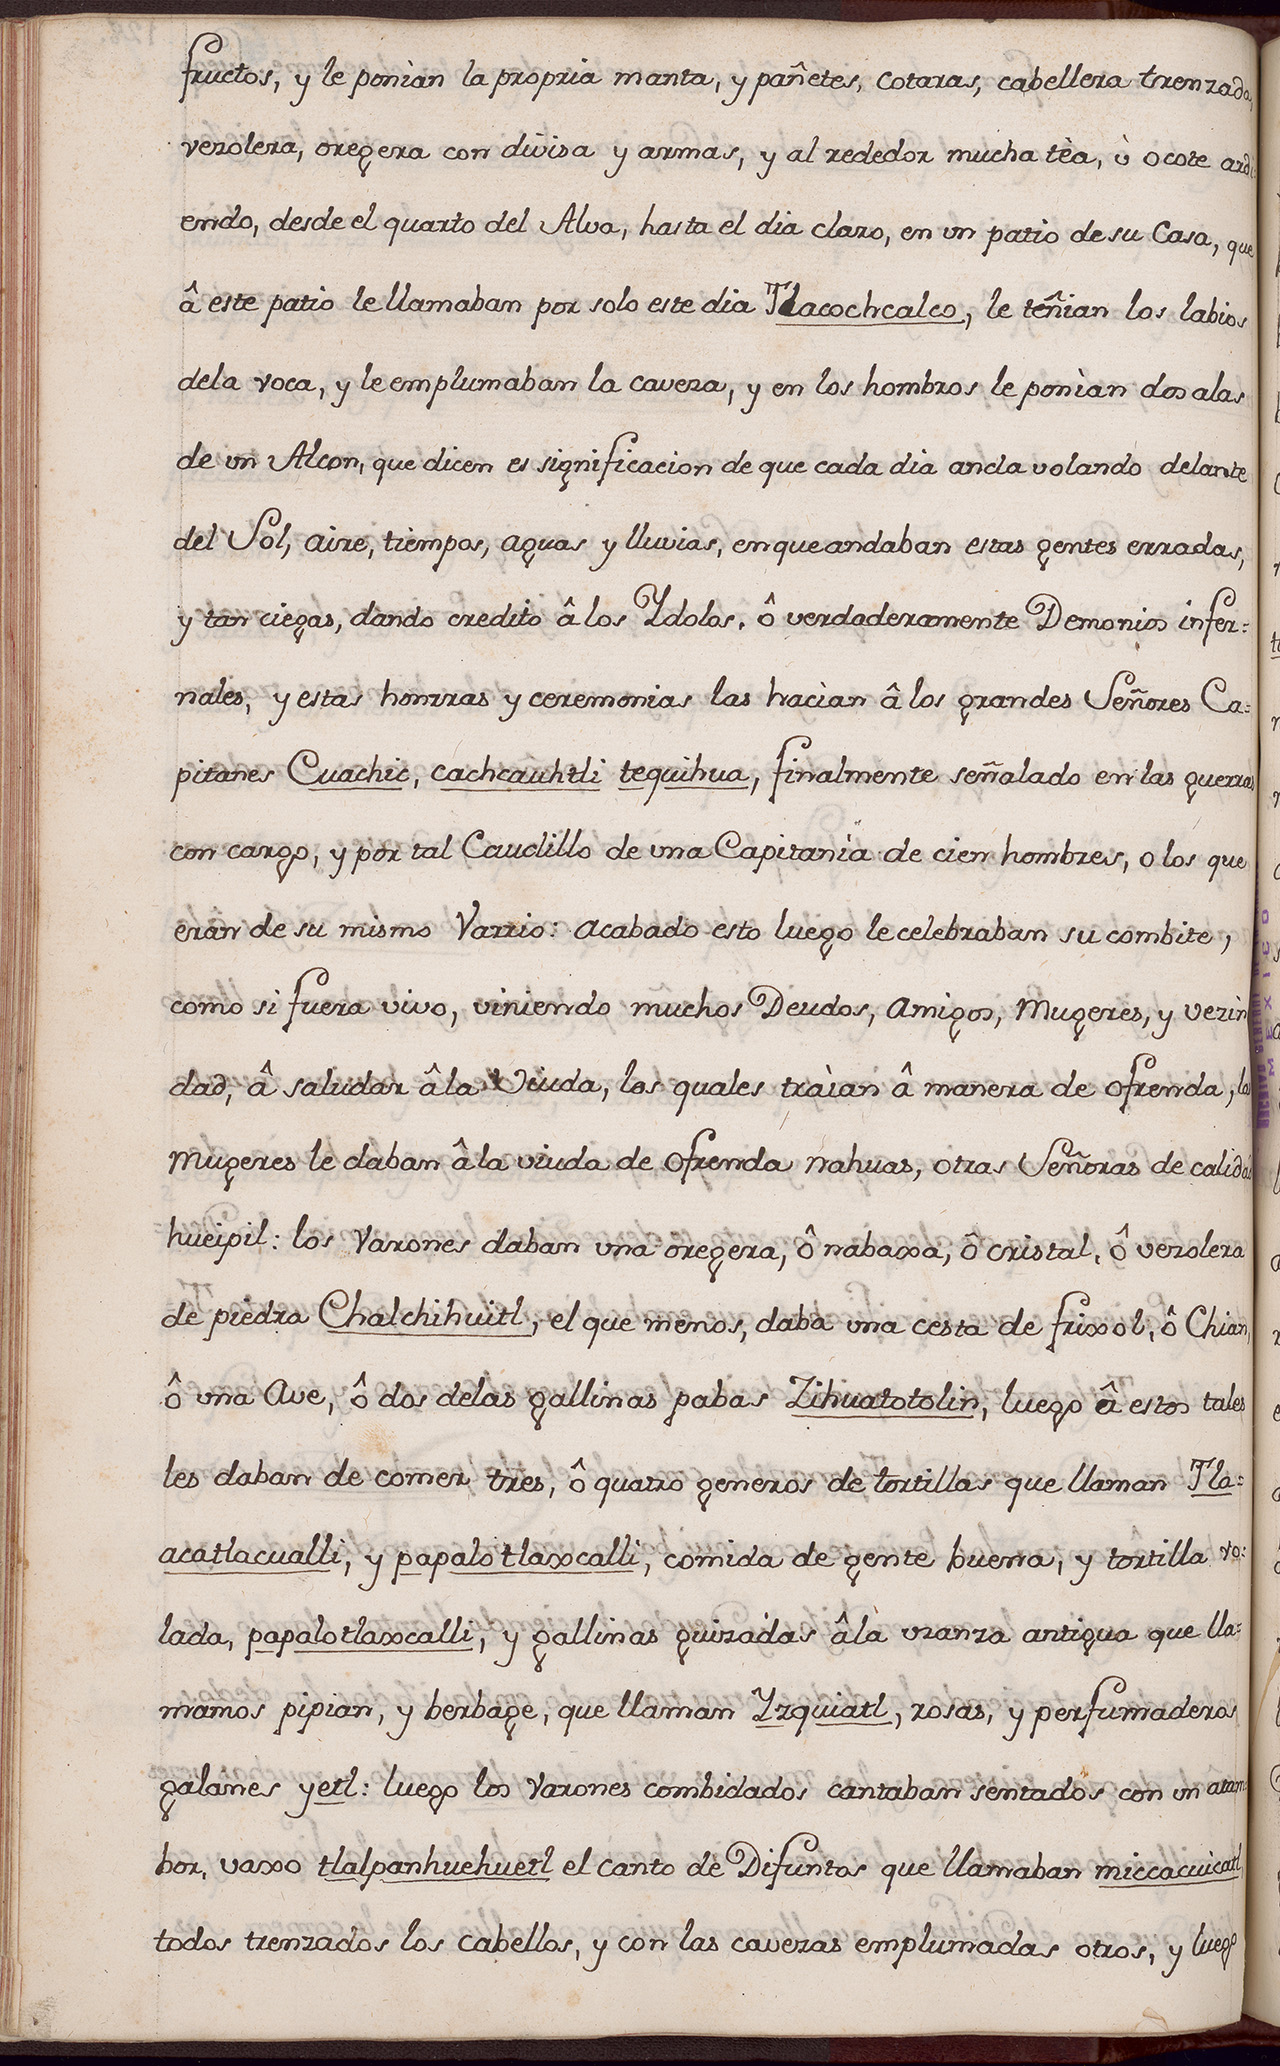 fructos, y le ponian la propria manta, y pañetes, cotaras, cabellera trenzada,
vezolera, oregera con divisa y armas, y al rededor mucha tèa, ù ocote ardi=
endo, desde el quarto del Alva, hasta el dia claro, en un patio de su Casa, que
â este patio le llamaban por solo este dia Tlacochcalco, le teñian los labios
dela voca, y le emplumaban la caveza, y en los hombros le ponìan dos alas
de un Alcon, que dicen es significacion de que cada dia anda volando delante
del Sol, aire, tiempos, aguas y lluvias, en que andaban estas gentes erradas,
y tan ciegas, dando credito â los Ydolos, ô verdaderamente Demonios infer=
nales, y estas honrras y ceremonias las hacian â los grandes Señores Ca=
pitanes Cuachic, cachcauhtli tequihua, finalmente señalado en las guerras
con cargo, y por tal Caudillo de una Capitanìa de cien hombres, o los que
eran de su mismo Varrio: acabado esto luego le celebraban su combite,
como si fuera vivo, viniendo muchos Deudos, Amigos, Mugeres, y vezin
dad, â saludar âla Viuda, los quales traìan â manera de ofrenda, las
Mugeres le daban â la viuda de ofrenda nahuas, otras Señoras de calidad
hueipil: los Varones daban una oregera, ô nabaxa, ô cristal, ô vezolera
de piedra Chalchihuitl, el que menos, daba una cesta de frixol, ô Chian,
ô una Ave, ô dos delas gallinas pabas Zihuatotolin, luego â estos tales
les daban de comer tres, ô quatro generos de tortillas que llaman Tla=
acatlacualli, y papalotlaxcalli, comida de gente buena, y tortilla vo=
lada, papalotlaxcalli, y gallinas guizadas âla uzanza antigua que lla=
mamos pipian, y berbage, que llaman Yzquiatl, rosas, y perfumaderos
galanes yetl: luego los Varones combidados cantaban sentados con un atam=
bor, vaxo tlalpanhuehuetl el canto de Difuntos que llamaban miccacuicatl
todos trenzados los cabellos, y con las cavezas emplumadas otros, y luego